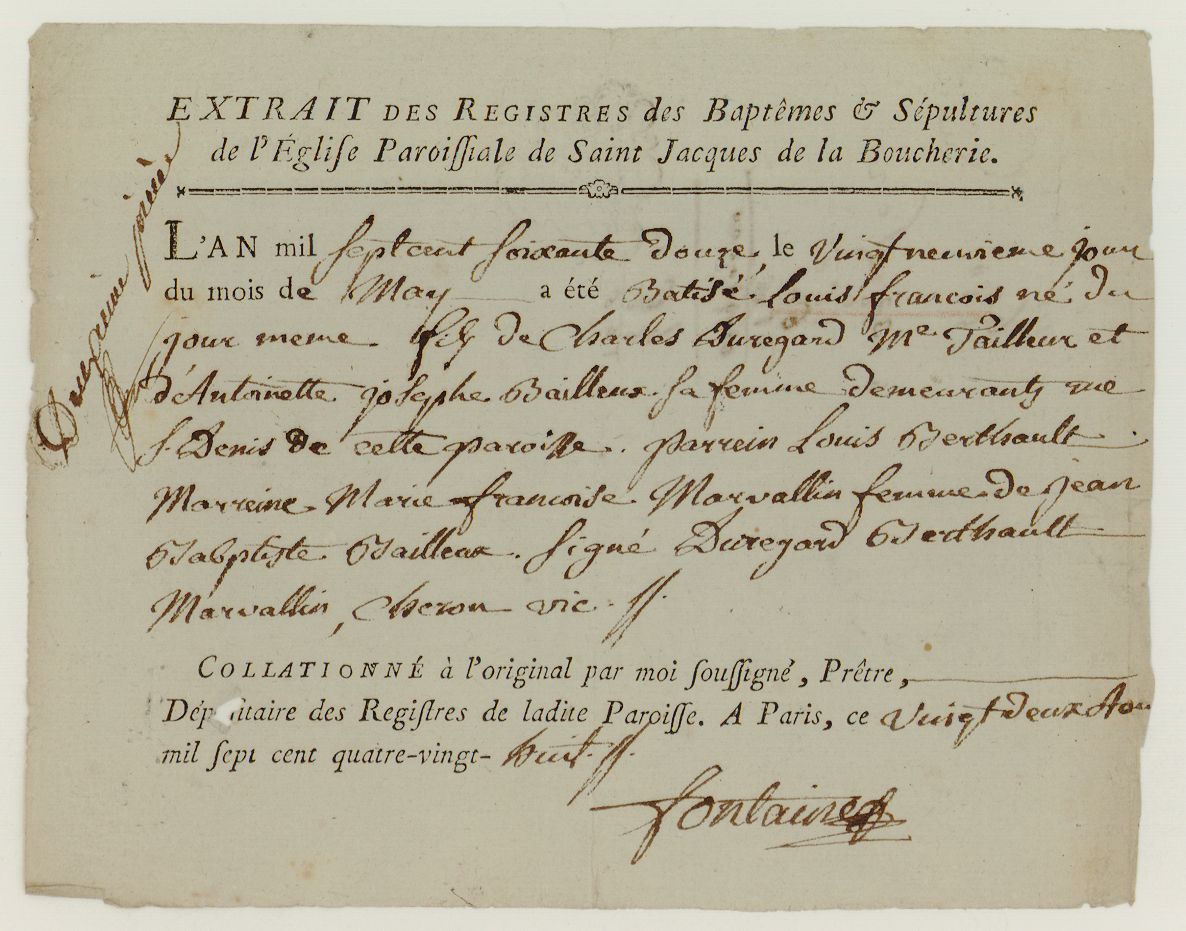 EXTRAIT DES REGISTRES des Baptêmes & Sépultures
de l'Égliſe Paroiſſiale de Saint Jacques de la Boucherie.
L'AN mil sept cent soixante douze, le vingt neuvieme jour
du mois de May a été Batisé Louis françois né du
jour meme fils de Charles Duregard Me Tailleur et
d'Antoinette josephe Bailleux sa femme demeurants rue
S. Denis de cette paroisse. parrein Louis Berthault
Marreine Marie françoise Marvallin femme de jean
Babptiste Bailleux. signé Duregard Berthault
Marvallin, Cheron vic. //.
COLLATIONNÉ à l'original par moi ſouſſigné, Prêtre,
Dép ſitaire des Regiſtres de ladite Paroiſſe. A Paris, ce vingt deux Aou
mil ſept cent quatre-vingt- huit. //.
fontaine
Deuxieme